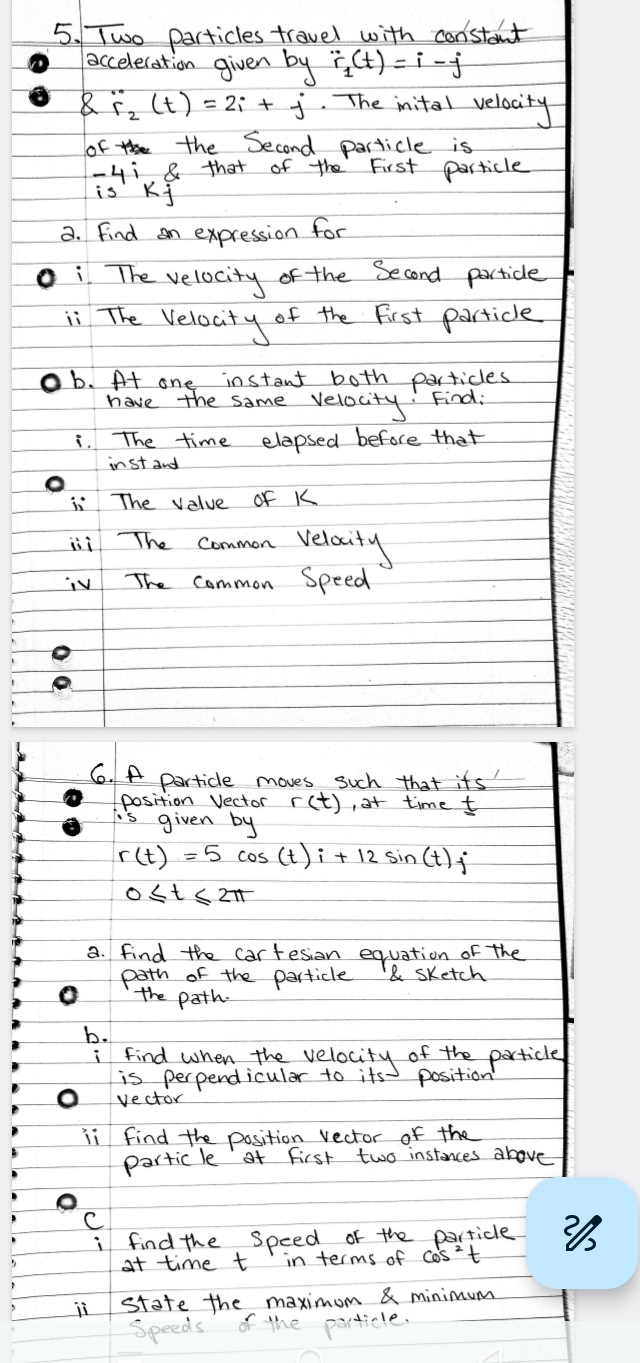 5. Two particles travel with constant
acceleration given by r̈₁(t) = i - j
& r̈₂ (t) = 2i + j . The inital velocity
of the the Second particle is
-4i & that of the First particle
is Kj
a. Find an expression for
i The velocity of the Second particle
ii The Velocity of the First particle
b. At one instant both particles
have the same velocity. Find:
i. The time elapsed before that
instand
ii The value of K
iii The common Velocity
iv The common Speed
6. A particle moves such that its
position Vector r(t), at time t
is given by
r(t) = 5 cos (t) i + 12 sin (t) j
0 ≤ t ≤ 2π
a. find the cartesian equation of the
path of the particle & sketch
the path.
b.
i find when the velocity of the particle
is perpendicular to its position
vector
ii find the position vector of the
particle at first two instances above
C
i find the Speed of the particle
at time t in terms of cos²t
ii state the maximum & minimum
Speeds of the particle.